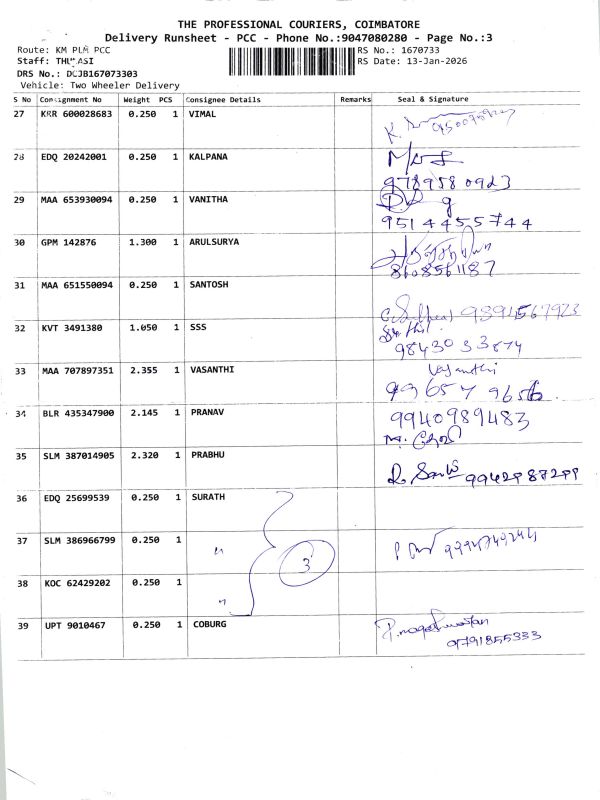 THE PROFESSIONAL COURIERS, COIMBATORE
Delivery Runsheet - PCC - Phone No.:9047080280 - Page No.:3
Route: KM PLM PCC
RS No.: 1670733
Staff: THULASI
RS Date: 13-Jan-2026
DRS No.: DCJB167073303
Vehicle: Two Wheeler Delivery
S No Consignment No Weight PCS Consignee Details Remarks Seal & Signature
27 KRR 600028683 0.250 1 VIMAL
28 EDQ 20242001 0.250 1 KALPANA
9789580923
29 MAA 653930094 0.250 1 VANITHA
9514455744
30 GPM 142876 1.300 1 ARULSURYA
8608561187
31 MAA 651550094 0.250 1 SANTOSH
9394567923
32 KVT 3491380 1.050 1 SSS
9843033874
33 MAA 707897351 2.355 1 VASANTHI Vasanthi
996579656
34 BLR 435347900 2.145 1 PRANAV 9940989483
35 SLM 387014905 2.320 1 PRABHU
36 EDQ 25699539 0.250 1 SURATH
37 SLM 386966799 0.250 1 〃 3
38 KOC 62429202 0.250 1 〃
39 UPT 9010467 0.250 1 COBURG
9791855333